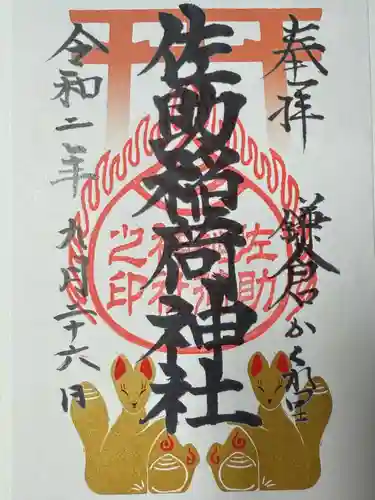 奉拝
鎌倉かくれ里
佐助稲荷神社
令和二年
九月二十六日
左助
神社
之印